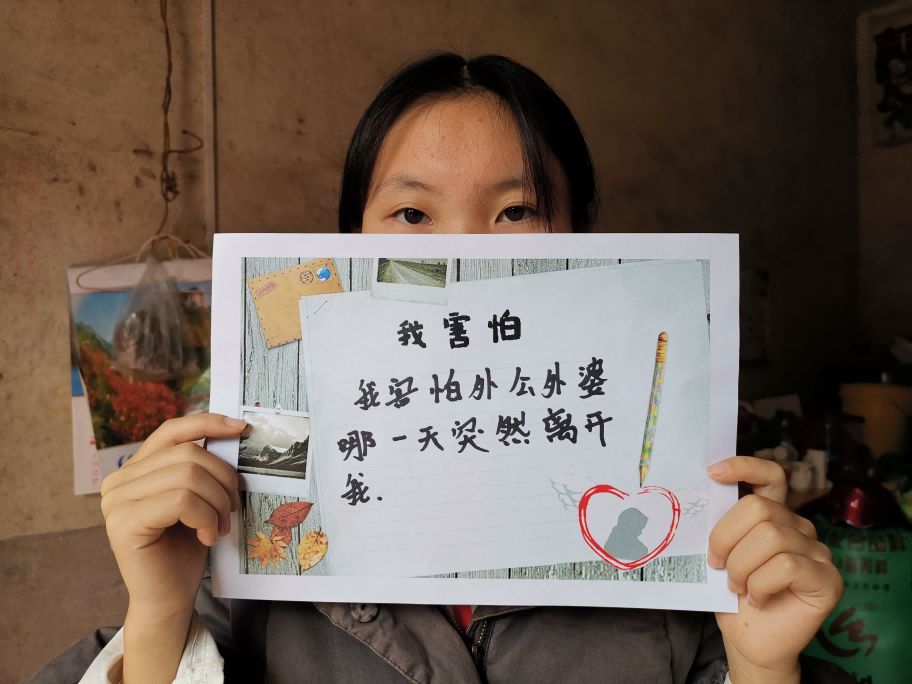 我害怕
我害怕外公外婆
哪一天突然离开
我.